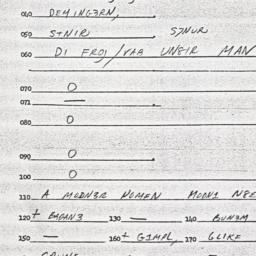 040 DEMINGERN,
050 S+NIR S7NUR
060 DI FROJ/VAB UNSER MAN
070 O
071 —
080 O
090 O
100 O
110 A MODN3R NOMEN MODN1 N8E
120 + BAGAN3 130 — 140 BUNEM
150 — 160 + GIMPL, 170 GLIKE